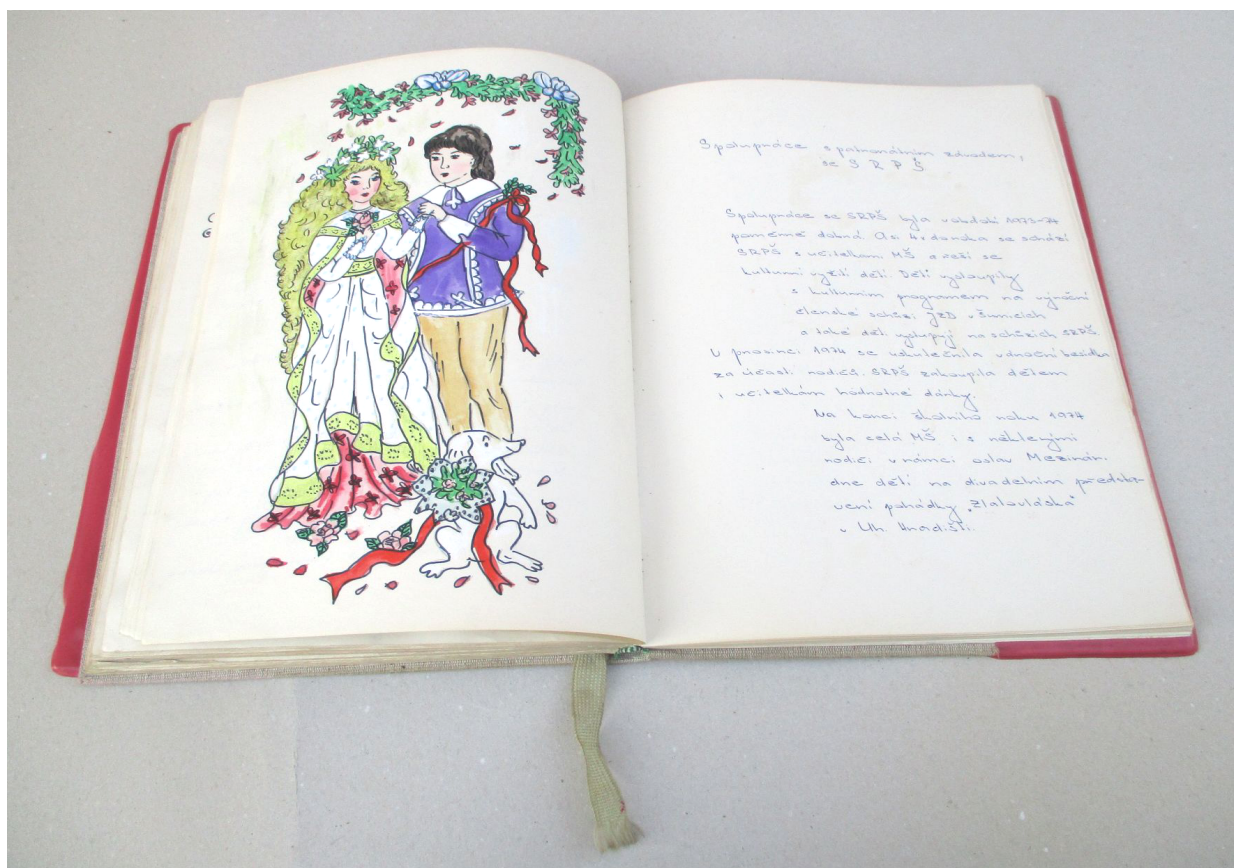 Spolupráce s patronátním závodem,
se S R P Š
Spolupráce se SRPŠ byla v období 1973-74
poměrně dobrá. Asi 4x do roka se schází
SRPŠ s učitelkami MŠ a řeší se
kulturní vyžití dětí. Děti vystoupily
s kulturním programem na výroční
členské schůzi JZD v
a také děti vystupují na schůzích SRPŠ.
V prosinci 1974 se uskutečnila vánoční besídka
za účasti rodičů. SRPŠ zakoupila dětem
i učitelkám hodnotné dárky.
Na konci školního roku 1974
byla celá MŠ i s některými
rodiči v rámci oslav Mezinár.
dne dětí na divadelním předsta-
vení pohádky "Zlatovláska"
v Uh. Hradišti.